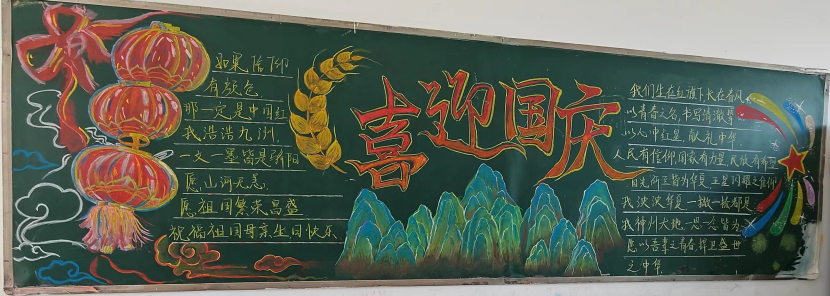 如果信仰
有颜色,
那一定是中国红
我浩浩九洲,
一文一墨皆是骄阳
愿山河无恙,
愿祖国繁荣昌盛
祝福祖国母亲生日快乐
喜迎国庆
我们生在红旗下,长在春风
以青春之名,书写清澈挚
以心中红星,献礼中华.
人民有信仰,国家有力量,民族有希望
目光所至皆为华夏,五星闪耀
我泱泱华夏,一撇一捺都是
我神州大地,一思一念皆为
愿以吾辈之青春,捍卫盛世
之中华.